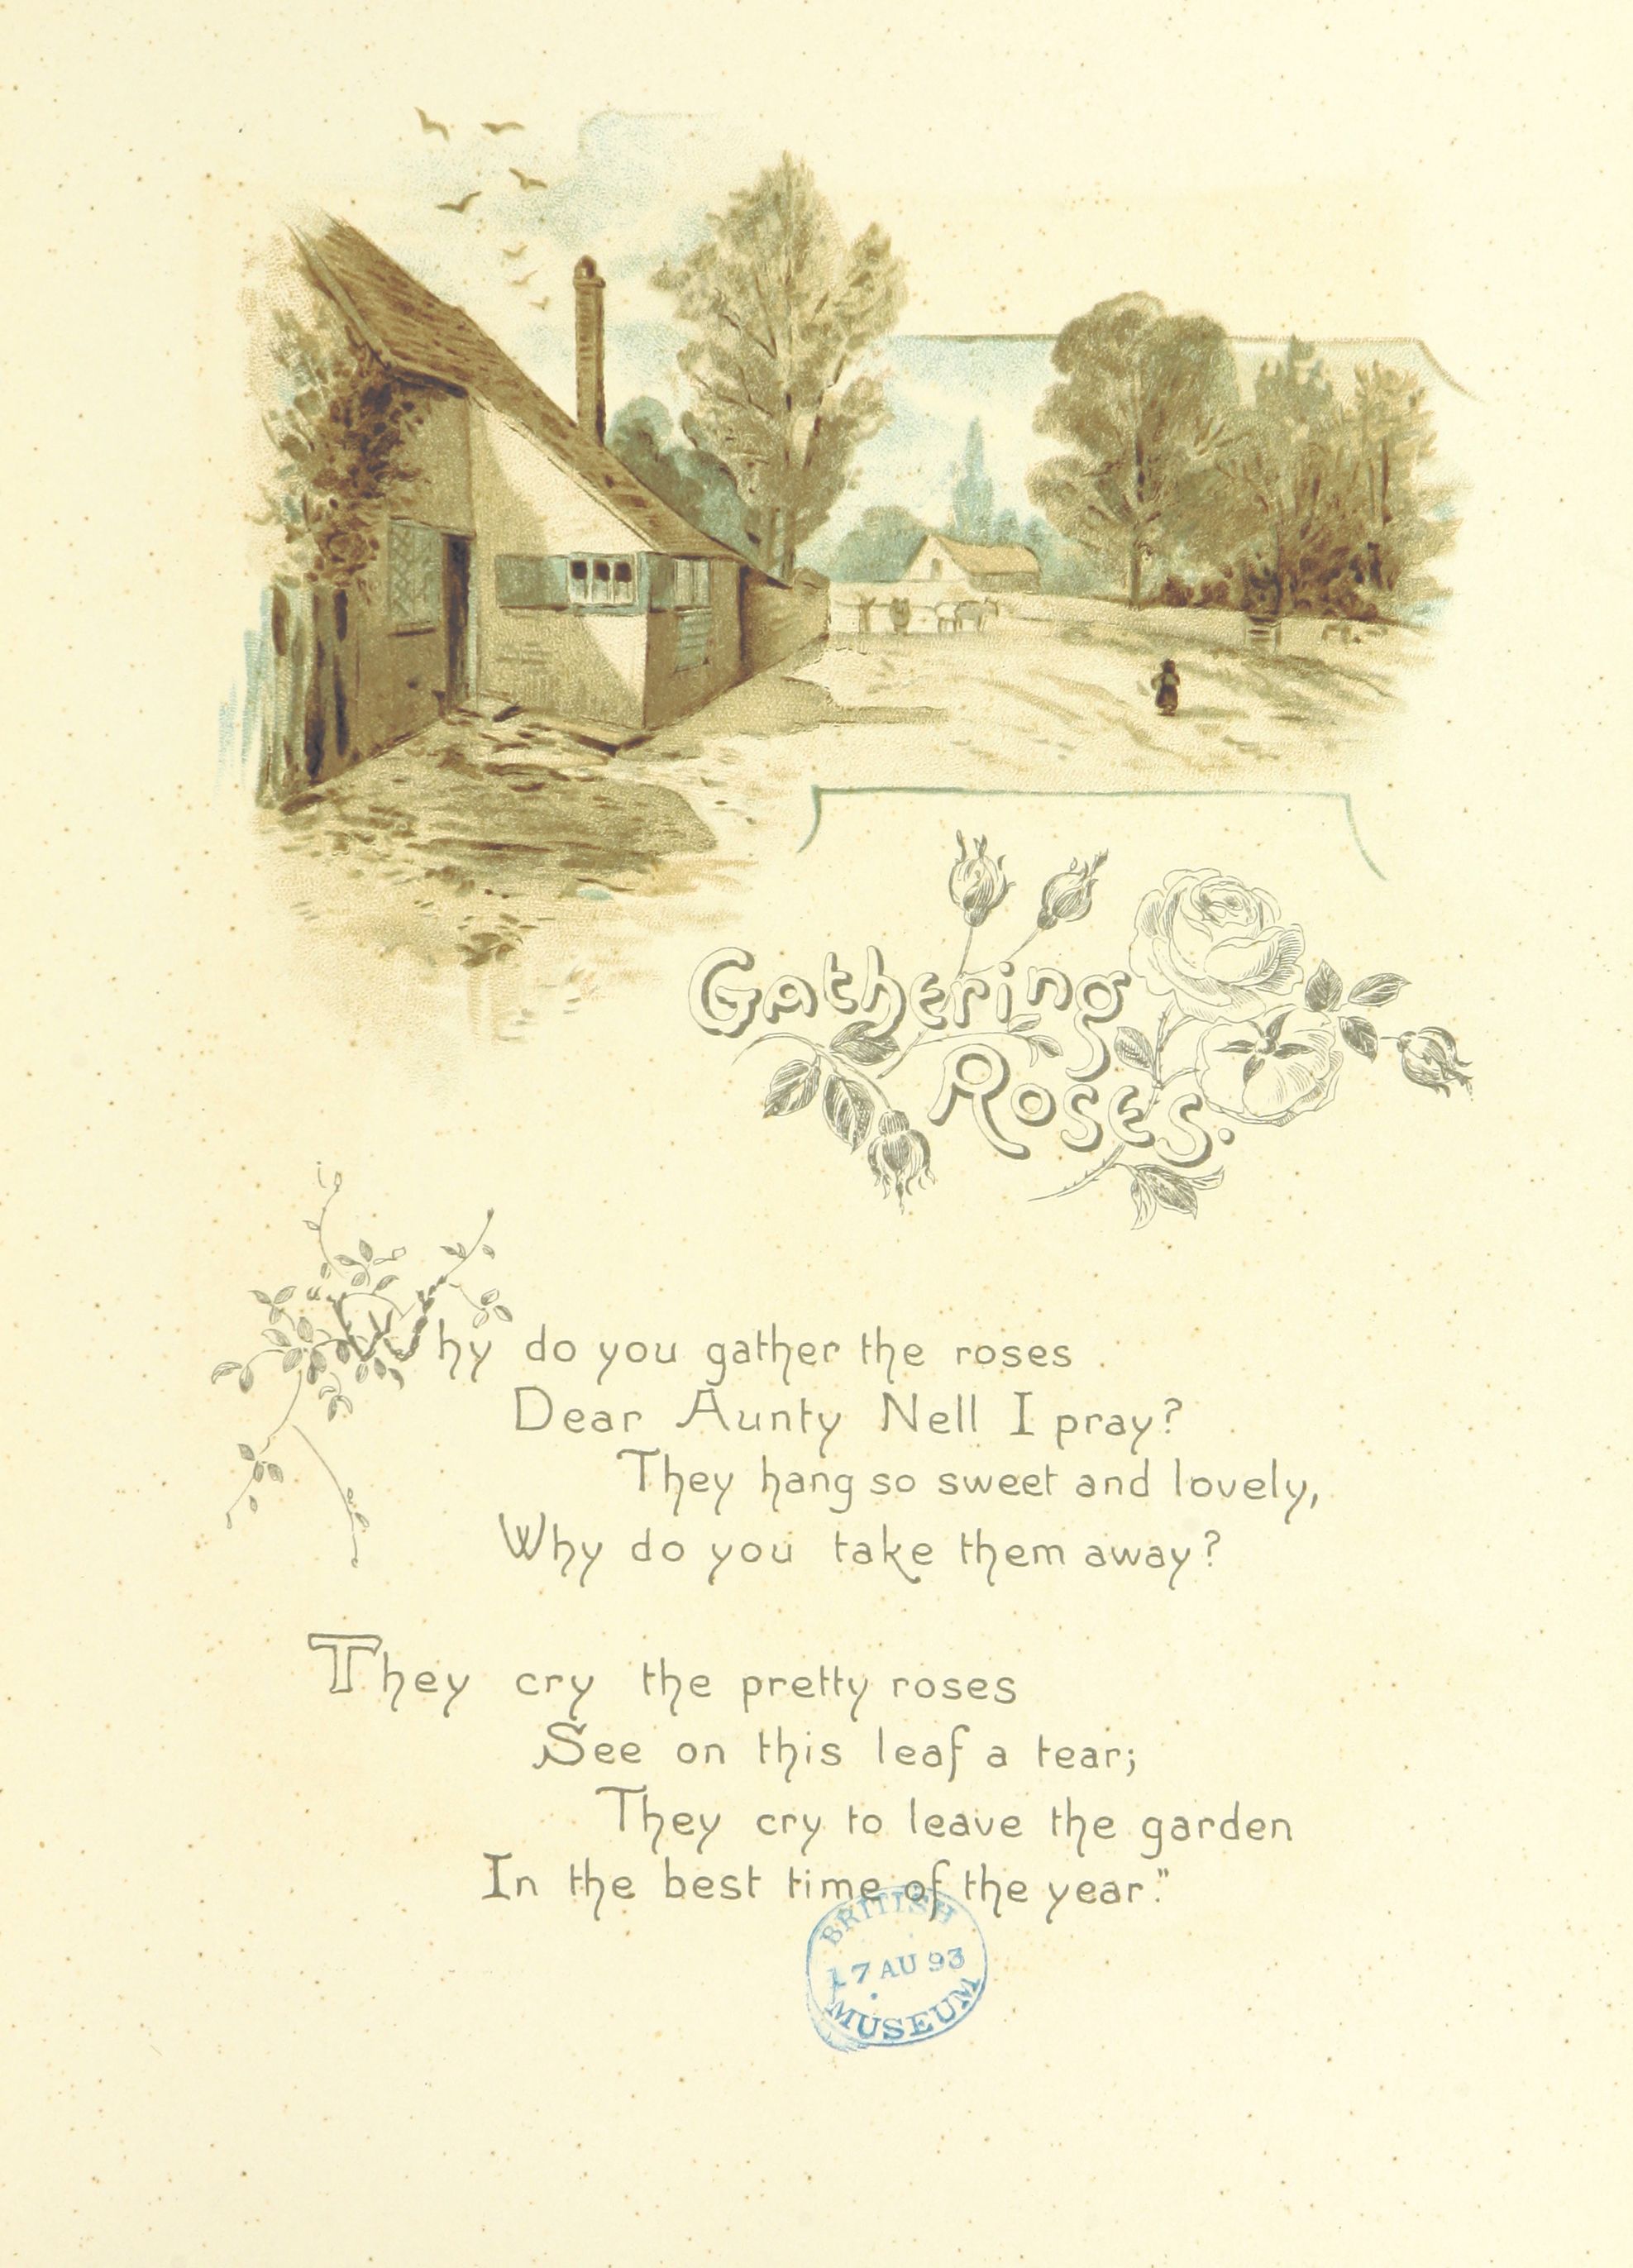 Gathering
Roses.
Why do you gather the roses
Dear Aunty Nell I pray?
They hang so sweet and lovely,
Why do you take them away?
They cry the pretty roses
See on this leaf a tear;
They cry to leave the garden
In the best time of the year."
BRITISH
17 AU 93
MUSEUM